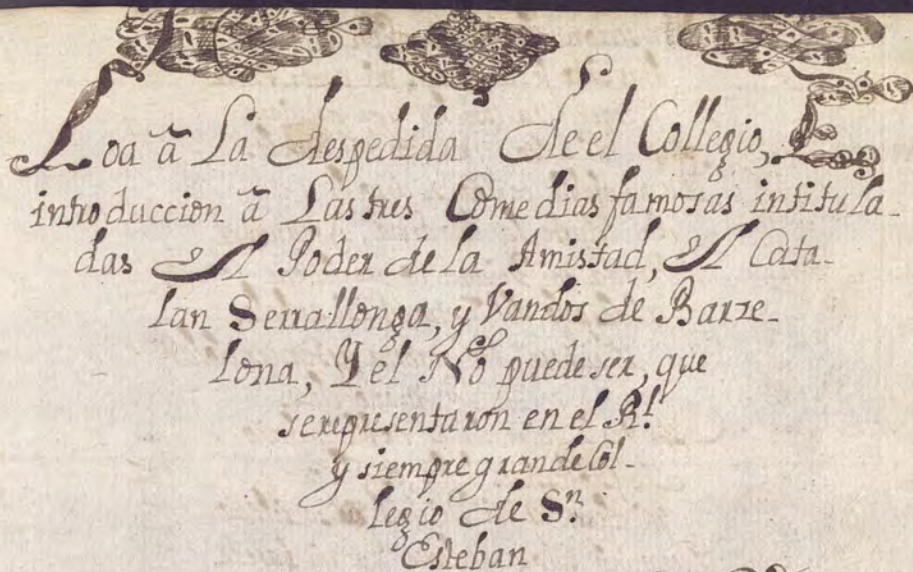 Loa â La despedida de el Collegio, E
introduccion â Las tres Comedias famosas intitula-
das El Poder de la Amistad, El Cata-
lan Serrallonga, y Vandos de Barze-
lona, Y el No puede ser, que
se representaron en el Rl.
y siempre grande Col-
legio de Sn.
Esteban